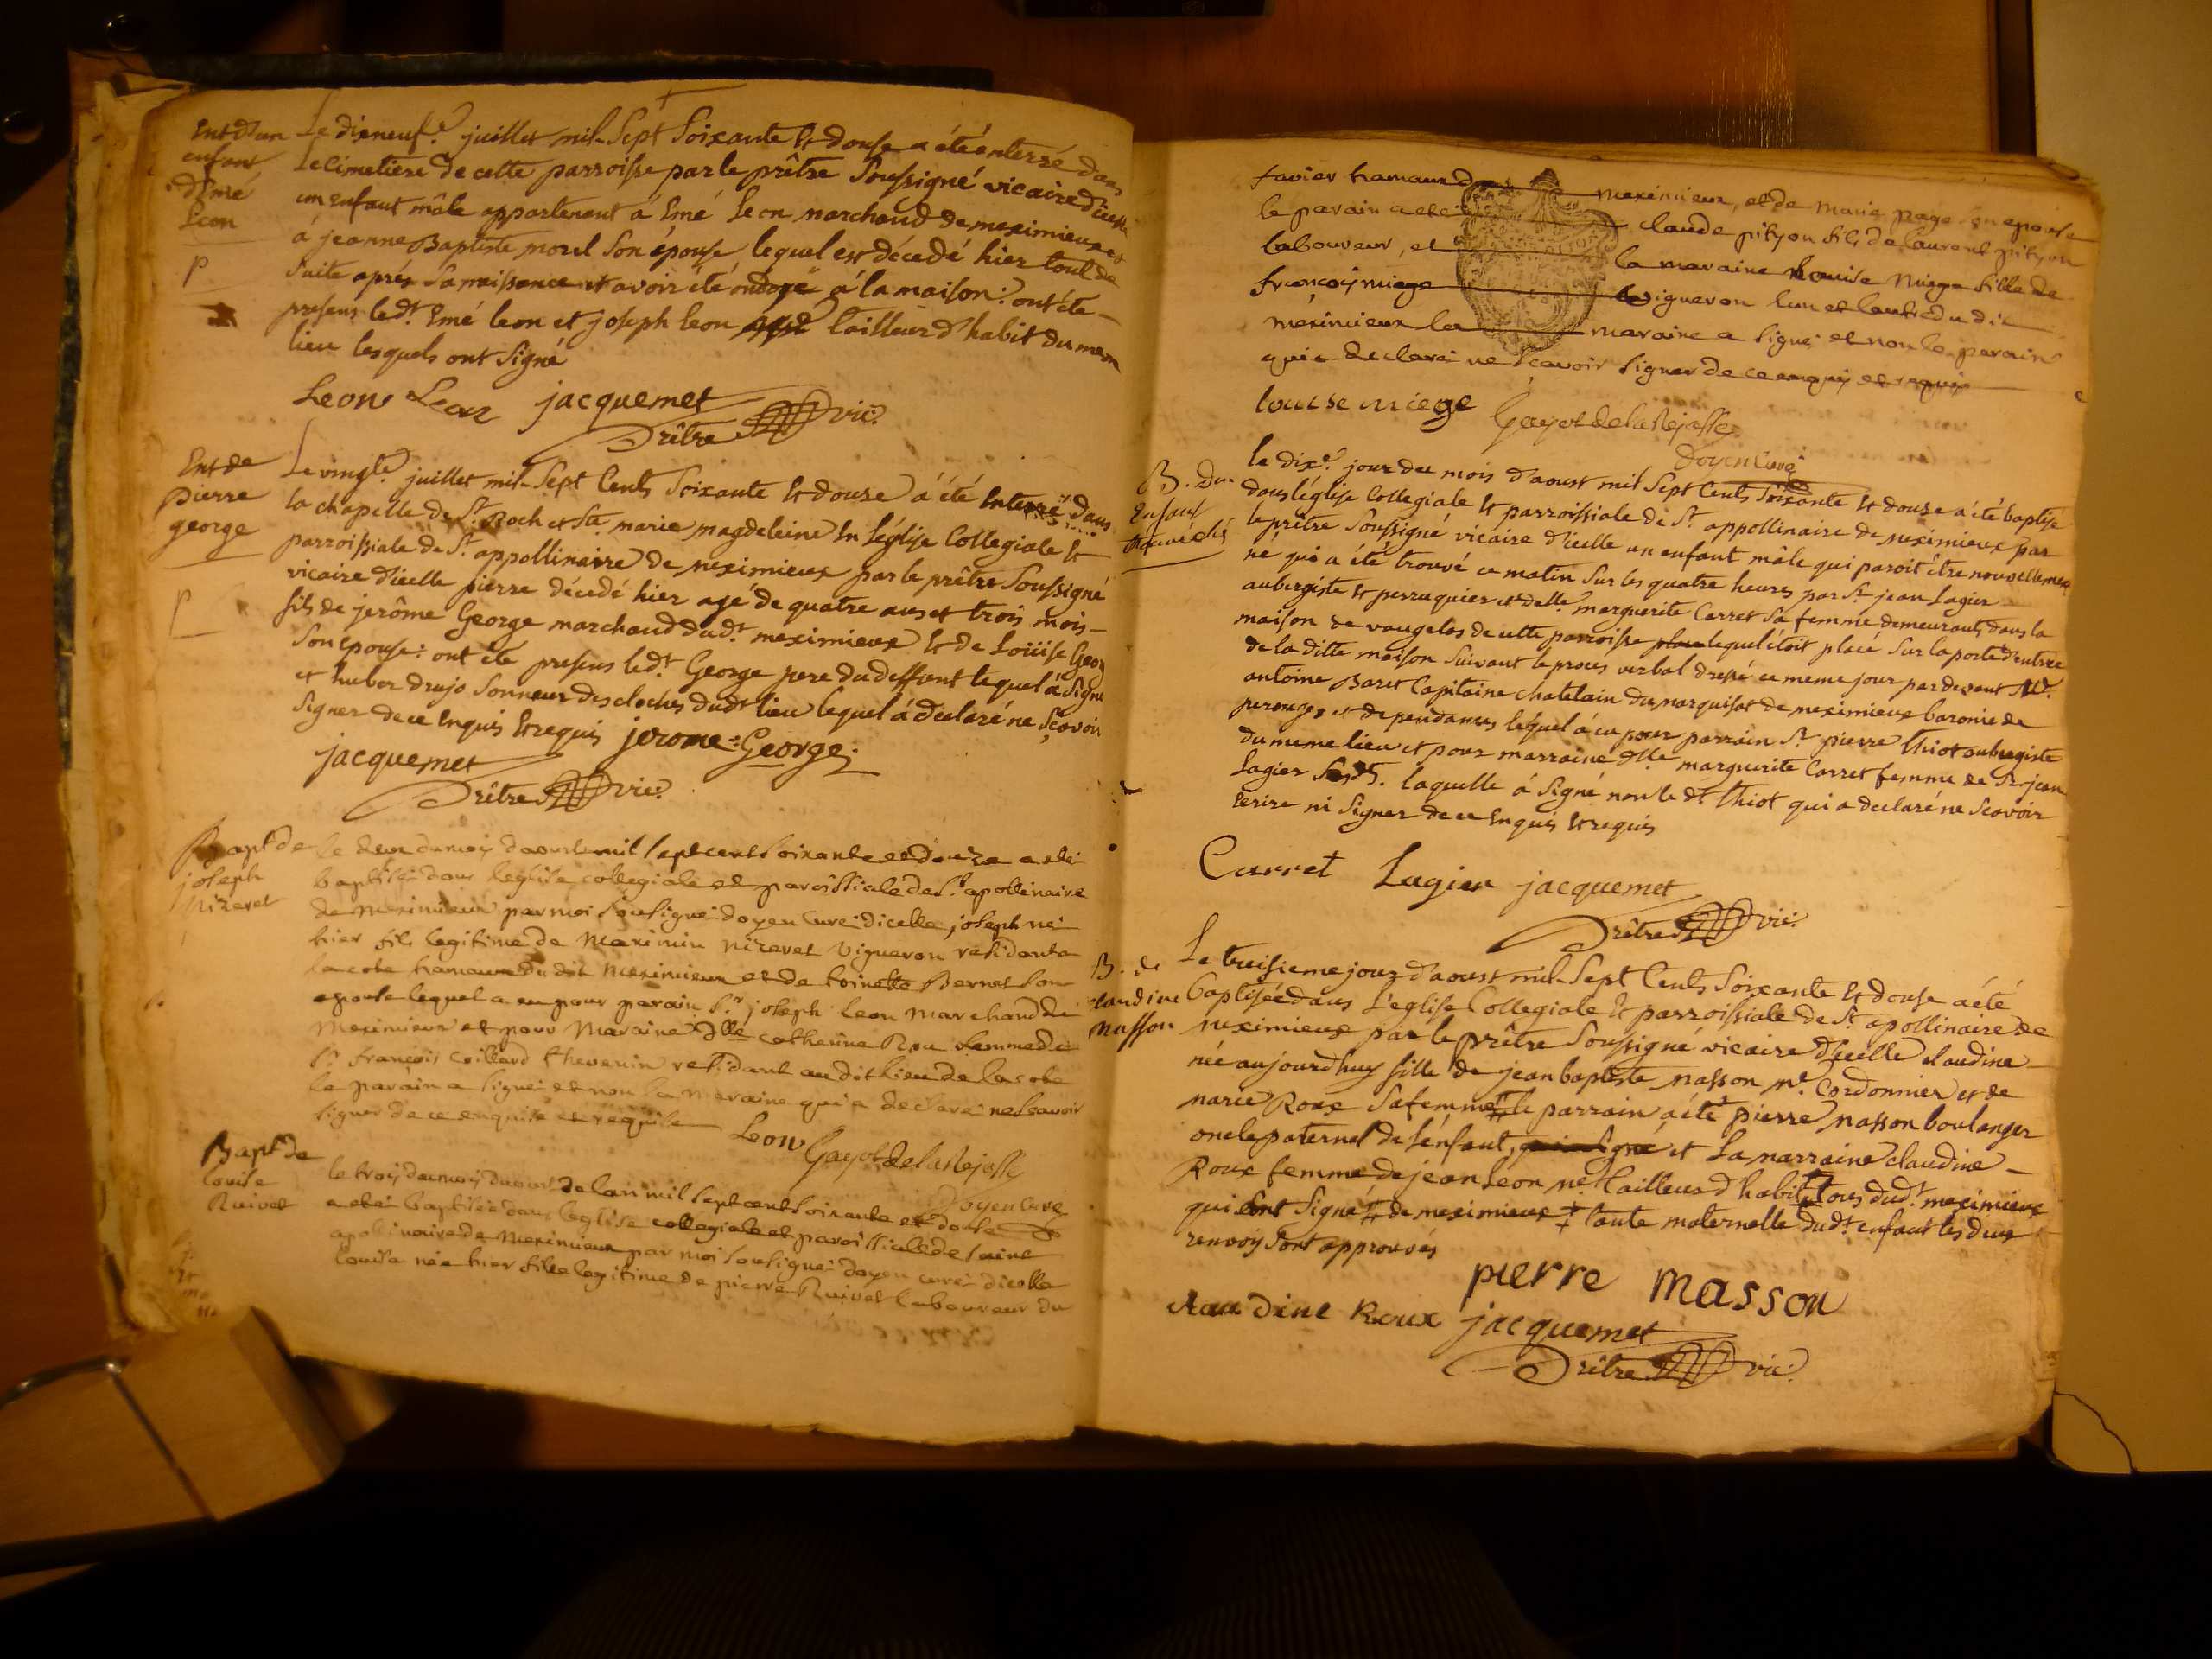 Ent d'un
enfant
d'Emé
Leon
P
Le dixneuf.e juillet mil Sept Soixante et douse a été enterré dans
le cimetiere de cette parroisse par le prêtre Soussigné vicaire d'icelle
un enfant mâle appartenant á Emé Leon marchand de meximieux et
á jeanne Baptiste morel Son épouse lequel est décedé hier tout de
Suite aprés Sa naissance et avoir été ondoyé á la maison: ont été
presens led.t Emé leon et joseph leon tailleur d'habit du meme
lieu lesquels ont Signé
Leon Leon jacquemet
Prêtre vic.
Ent de
pierre
george
P
Le vingt.e juillet mil Sept Cents Soixante et douse á été Enterré dans
la chapelle de S.t Roch et Ste marie magdeleine En l'église Collegiale et
parroissiale de S.t appollinaire de meximieux par le prêtre Soussigné
vicaire d'icelle pierre décedé hier agé de quatre ans et trois mois
fils de jerôme George marchand dud.t meximieux et de Loüise Geor
Son epouse: ont été presens led.t George pere du deffunt lequel á Signé
et huber drujo Sonneur des cloches dud.t lieu lequel á declaré ne Sçavoir
Signer de ce Enquis et requis jerome George
jacquemet
Prêtre vic.
Bapt de
joseph
nizeret
le deux du mois daoust mil sept cent soixante et douze a eté
baptisé dans leglise collegiale et paroissiale de S.t apollinaire
de meximieux par moi sousigné doyen curé dicelle, joseph né
hier fils legitime de Meximin nizeret vigneron residant a
la cote hameau du dit meximieux et de toinette Bernet son
epouse lequel a eu pour parain S.r joseph Leon marchand de
meximieux et pour maraine dlle catherine Rou femme de
S.r françois coillard thevenin residant au dit lieu de la cote
le parain a signé et non la maraine qui a declaré ne scavoir
signer de ce enquise et requise
Leon Gayot de la Rejasse
Doyen curé
Bapt de
louise
Ruivet
le trois du mois daoust de lan mil sept cent soixante et douse
a eté baptisée dans leglise collegiale et paroissiale de saint
apollinaire de meximieux par moi sousigné doyen curé dicelle
louise née hier fille legitime de pierre Ruivet laboureur du
favier hameau de meximieux, et de marie page son epouse
le parain a eté claude pityon fils de laurent pityon
laboureur, et la maraine louise miege fille de
françois miege vigneron lun et lautre du dit
meximieux la maraine a signé et non le parain
qui a declaré ne sçavoir signer de ce enquis et requis
louise miege Gayot de la Rejasse
Doyen Curé
B. Dun
Enfant
le dix.e jour du mois d'aoust mil Sept Cents Soixante et douse á été baptisé
dans l'église Collegiale et parroissiale de S.t appollinaire de meximieux par
le prêtre Soussigné vicaire d'icelle un enfant mâle qui paroit être nouvellement
né qui a été trouvé ce matin Sur les quatre heures par S.r jean Lagier
aubergiste et perruquier et delle marguerite Carret Sa femme demeurants dans la
maison de vaugelas de cette parroisse lequel étoit placé Sur la porte d'entrée
de la ditte maison Suivant le proces verbal dressé ce meme jour par devant M.e
antoine Baret Capitaine chatelain du marquisat de meximieux baronie de
perouges et dependances lequel á eu pour parrain S.r pierre thiot aubergiste
du meme lieu et pour marraine dlle marguerite Carret femme de Sr jean
Lagier Susd.t laquelle á Signé non le d.t thiot qui a declaré ne Scavoir
Ecrire ni Signer de ce Enquis et requis
Carret Lagier jacquemet
Prêtre vic.
B. de
claudine
masson
Le treisieme jour d'aoust mil Sept Cents Soixante et douse a été
baptisée dans L'eglise Collegiale et parroissiale de S.t apollinaire de
meximieux par le prêtre Soussigné vicaire d'icelle claudine
née aujourdhuy fille de jean baptiste masson m.e Cordonnier et de
marie Roux Sa femme le parrain á été pierre masson boulanger
oncle paternel de l'énfant, et La marraine claudine
Roux femme de jean Leon m.e tailleur d'habit tous dud.t meximieux
qui ont Signé de meximieux tante maternelle dud.t enfant les deux
renvoy Sont approuvés
pierre masson
claudine Roux jacquemet
Prêtre vic.